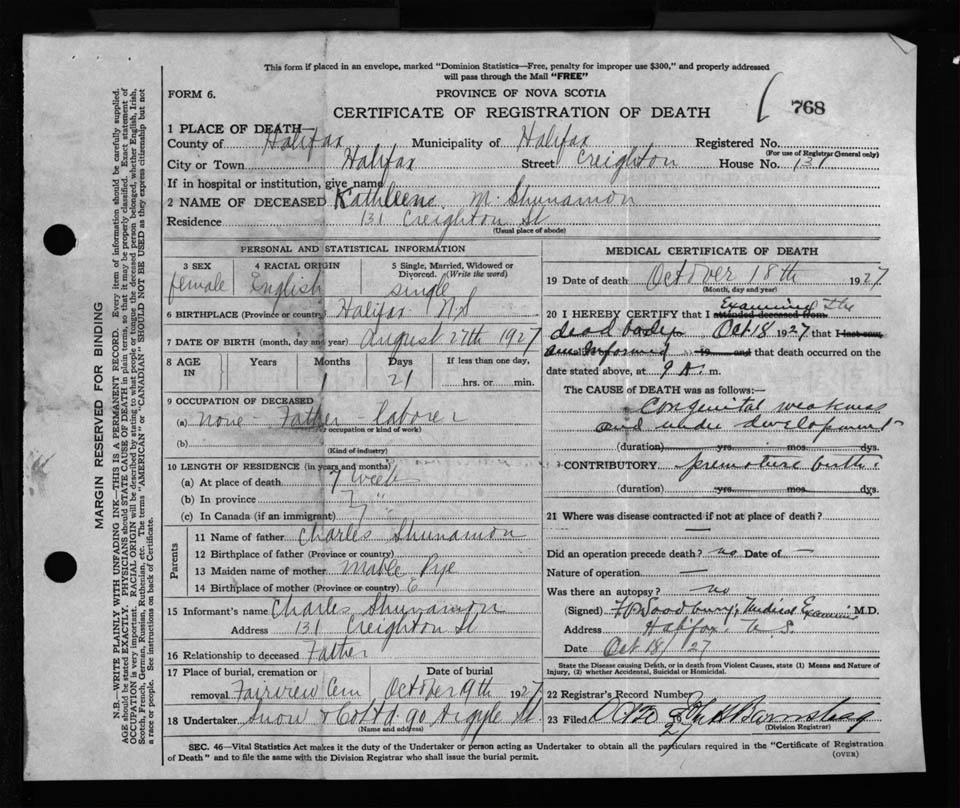 This form if placed in an envelope, marked "Dominion Statistics—Free, penalty for improper use $300," and properly addressed
will pass through the Mail "FREE"
FORM 6.
PROVINCE OF NOVA SCOTIA
768
CERTIFICATE OF REGISTRATION OF DEATH
1 PLACE OF DEATH—
County of Halifax Municipality of Halifax Registered No.
(For use of Registrar General only)
City or Town Halifax Street Creighton House No. 131
If in hospital or institution, give name
2 NAME OF DECEASED Kathleene M. Shunamon
Residence 131 Creighton St
(Usual place of abode)
PERSONAL AND STATISTICAL INFORMATION
3 SEX 4 RACIAL ORIGIN 5 Single, Married, Widowed or
Divorced. (Write the word)
female English single
6 BIRTHPLACE (Province or country) Halifax N.S
7 DATE OF BIRTH (month, day and year) August 27th 1927
8 AGE IN Years Months Days If less than one day,
1 21 hrs. or min.
9 OCCUPATION OF DECEASED
(a) none - Father - laborer
(occupation or kind of work)
(b)
(Kind of industry)
10 LENGTH OF RESIDENCE (in years and months)
(a) At place of death 7 weeks
(b) In province 7 "
(c) In Canada (if an immigrant)
Parents
11 Name of father Charles Shunamon
12 Birthplace of father (Province or country)
13 Maiden name of mother Mable Pye
14 Birthplace of mother (Province or country)
15 Informant's name Charles Shunamon
Address 131 Creighton St
16 Relationship to deceased Father
17 Place of burial, cremation or Date of burial
removal Fairview Cem October 19th 1927
18 Undertaker Snow & Co Ltd 90 Argyle St
(Name and address)
MEDICAL CERTIFICATE OF DEATH
19 Date of death October 18th 1927
(Month, day and year)
Examined the
20 I HEREBY CERTIFY that I attended deceased from
dead body Oct 18 1927 that I last saw
am Informed 19 and that death occurred on the
date stated above, at 9 A. m.
The CAUSE of DEATH was as follows:—
Congenital weakness
and under development
(duration) yrs. mos. dys.
CONTRIBUTORY premature birth.
(duration) yrs. mos. dys.
21 Where was disease contracted if not at place of death?
—
Did an operation precede death? no Date of —
Nature of operation —
Was there an autopsy? no
(Signed) Woodbury, Medical Examiner M.D.
Address Halifax, N.S.
Date Oct 18/27
State the Disease causing Death, or in death from Violent Causes, state (1) Means and Nature of
Injury, (2) whether Accidental, Suicidal or Homicidal.
22 Registrar's Record Number
23 Filed Oct 20 27
(Division Registrar)
SEC. 46—Vital Statistics Act makes it the duty of the Undertaker or person acting as Undertaker to obtain all the particulars required in the "Certificate of Registration
of Death" and to file the same with the Division Registrar who shall issue the burial permit.
(OVER)
MARGIN RESERVED FOR BINDING
N.B.—WRITE PLAINLY WITH UNFADING INK—THIS IS A PERMANENT RECORD. Every item of information should be carefully supplied.
AGE should be stated EXACTLY. PHYSICIANS should STATE CAUSE OF DEATH in plain terms, so that it may be properly classified. Exact statement of
OCCUPATION is very important. RACIAL ORIGIN will be described by stating to what people or tongue the deceased person belonged, whether English, Irish,
Scotch, French, German, Russian, Ruthenian, etc. The terms "AMERICAN" or "CANADIAN" SHOULD NOT BE USED as they express citizenship but not
a race or people. See instructions on back of Certificate.